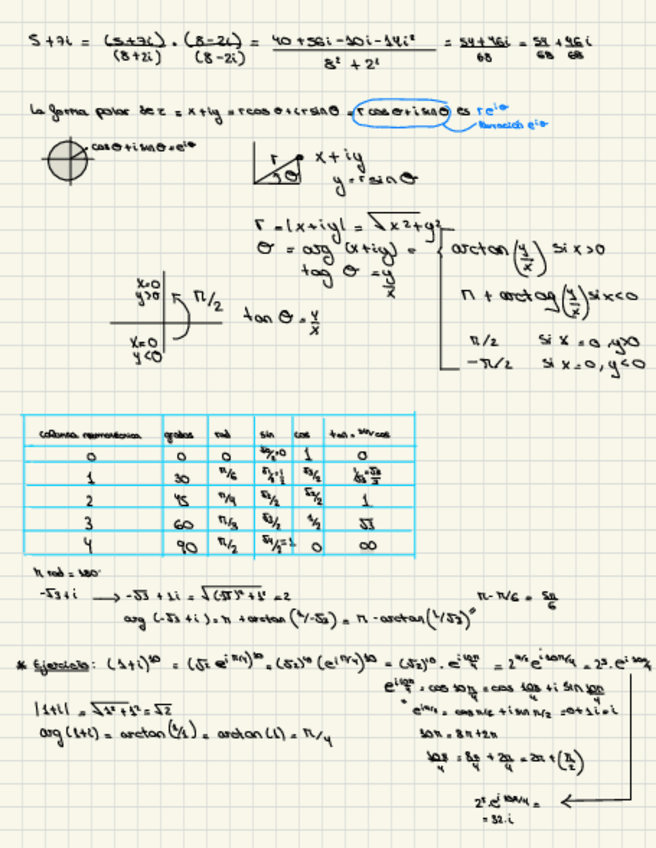 5+7i = (5+7i)/(8+2i) · (8-2i)/(8-2i) = 40+56i-10i-14i²/8²+2² = 54+46i/68 = 54/68 + 46/68 i
La forma polar de z = x+iy = r cos θ + i r sin θ = r cos θ + i sin θ es re^iθ
cos θ + i sin θ = e^iθ
r
θ
x+iy
y = r sin θ
r = |x+iy| = √x²+y²
θ = arg (x+iy) =
arctan (y/x) si x>0
tag θ = y/x
π + arctag (y/x) si x<0
π/2 si x=0, y>0
-π/2 si x=0, y<0
x=0
y>0
π/2
x=0
y<0
tan θ = y/x
columna nemotécnica grados rad sin cos tan = sin/cos
0 0 0 √0/2=0 1 0
1 30 π/6 √1/2=1/2 √3/2 1/√3=√3/3
2 45 π/4 √2/2 √2/2 1
3 60 π/3 √3/2 1/2 √3
4 90 π/2 √4/2=1 0 ∞
π rad = 180°
-√3+i → -√3 + 1i = √(-√3)²+1² = 2
π - π/6 = 5π/6
arg (-√3+i) = π + arctan (1/-√3) = π - arctan (1/√3)
* Ejercicio: (1+i)^10 = (√2 e^iπ/4)^10 = (√2)^10 (e^iπ/4)^10 = (√2)^10 · e^i10π/4 = 2^10/2 e^i10π/4 = 2^5 · e^i10π/4
e^i10π/4 = cos 10π/4 = cos 10π/4 + i sin 10π/4
|1+i| = √1²+1² = √2
e^iπ/2 = cos π/2 + i sin π/2 = 0+1i = i
arg (1+i) = arctan (1/1) = arctan (1) = π/4
10π = 8π+2π
10π/4 = 8π/4 + 2π/4 = 2π + (π/2)
2^5 · e^i10π/4 =
= 32·i